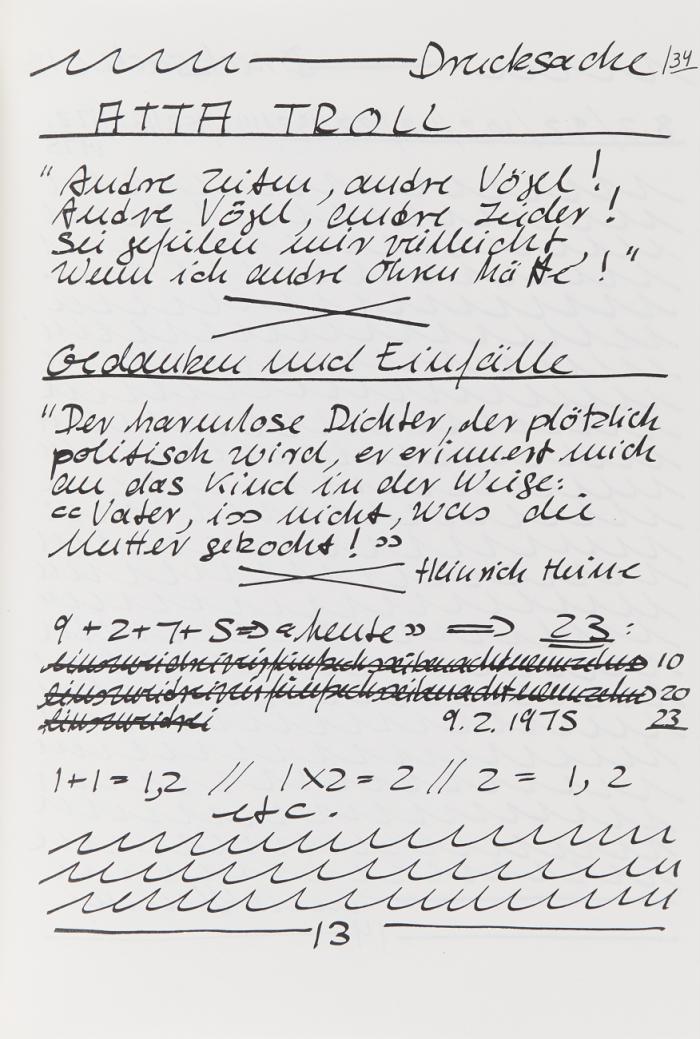 Drucksache /34
ATTA TROLL
"Andre Zeiten, andre Vögel!
Andre Vögel, andre Lieder!
Sei gefielen mir veilleicht,
Wenn ich andre Ohren hätte!"
Gedanken und Einfälle
"Der harmlose Dichter, der plötzlich
politisch wird, er erinnert mich
an das Kind in der Weige:
«Vater, iss nicht, was dei
Mutter gekocht!»
Heinrich Heine
9+2+7+5 => «heute» => 23:
einszweidreivierfünfsechssiebenachtneunzehn 10
einszweidreivierfünfsechssiebenachtneunzehn 20
einszweidrei 9.2.1975 23
1+1 = 1,2 // 1x2 = 2 // 2 = 1, 2
etc.
13